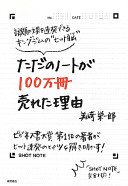 No.
DATE
話題の文具を連発できる
キングジムの“ヒット脳”
ただのノートが
100万冊
売れた理由
美崎栄一郎
ビジネス書大賞 第1位の著者が
ヒット連発のヒミツを解き明かす!
SHOT NOTE
「SHOT NOTE」